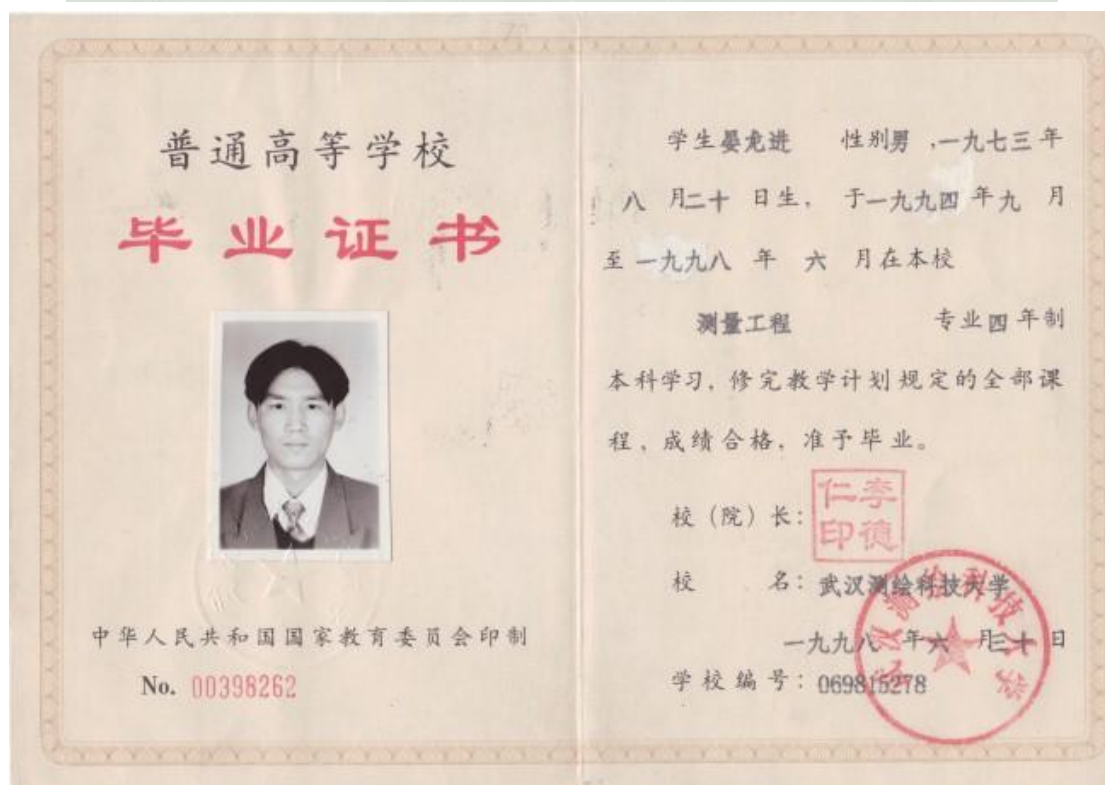 普通高等学校
毕业证书
中华人民共和国国家教育委员会印制
No. 00398262
学生晏龙进 性别男,一九七三年
八月二十日生,于一九九四年九月
至一九九八年六月在本校
测量工程 专业四年制
本科学习,修完教学计划规定的全部课
程,成绩合格,准予毕业。
校(院)长:
李德仁印
校名:武汉测绘科技大学
一九九八年六月三十日
学校编号:069815278
武汉测绘科技大学